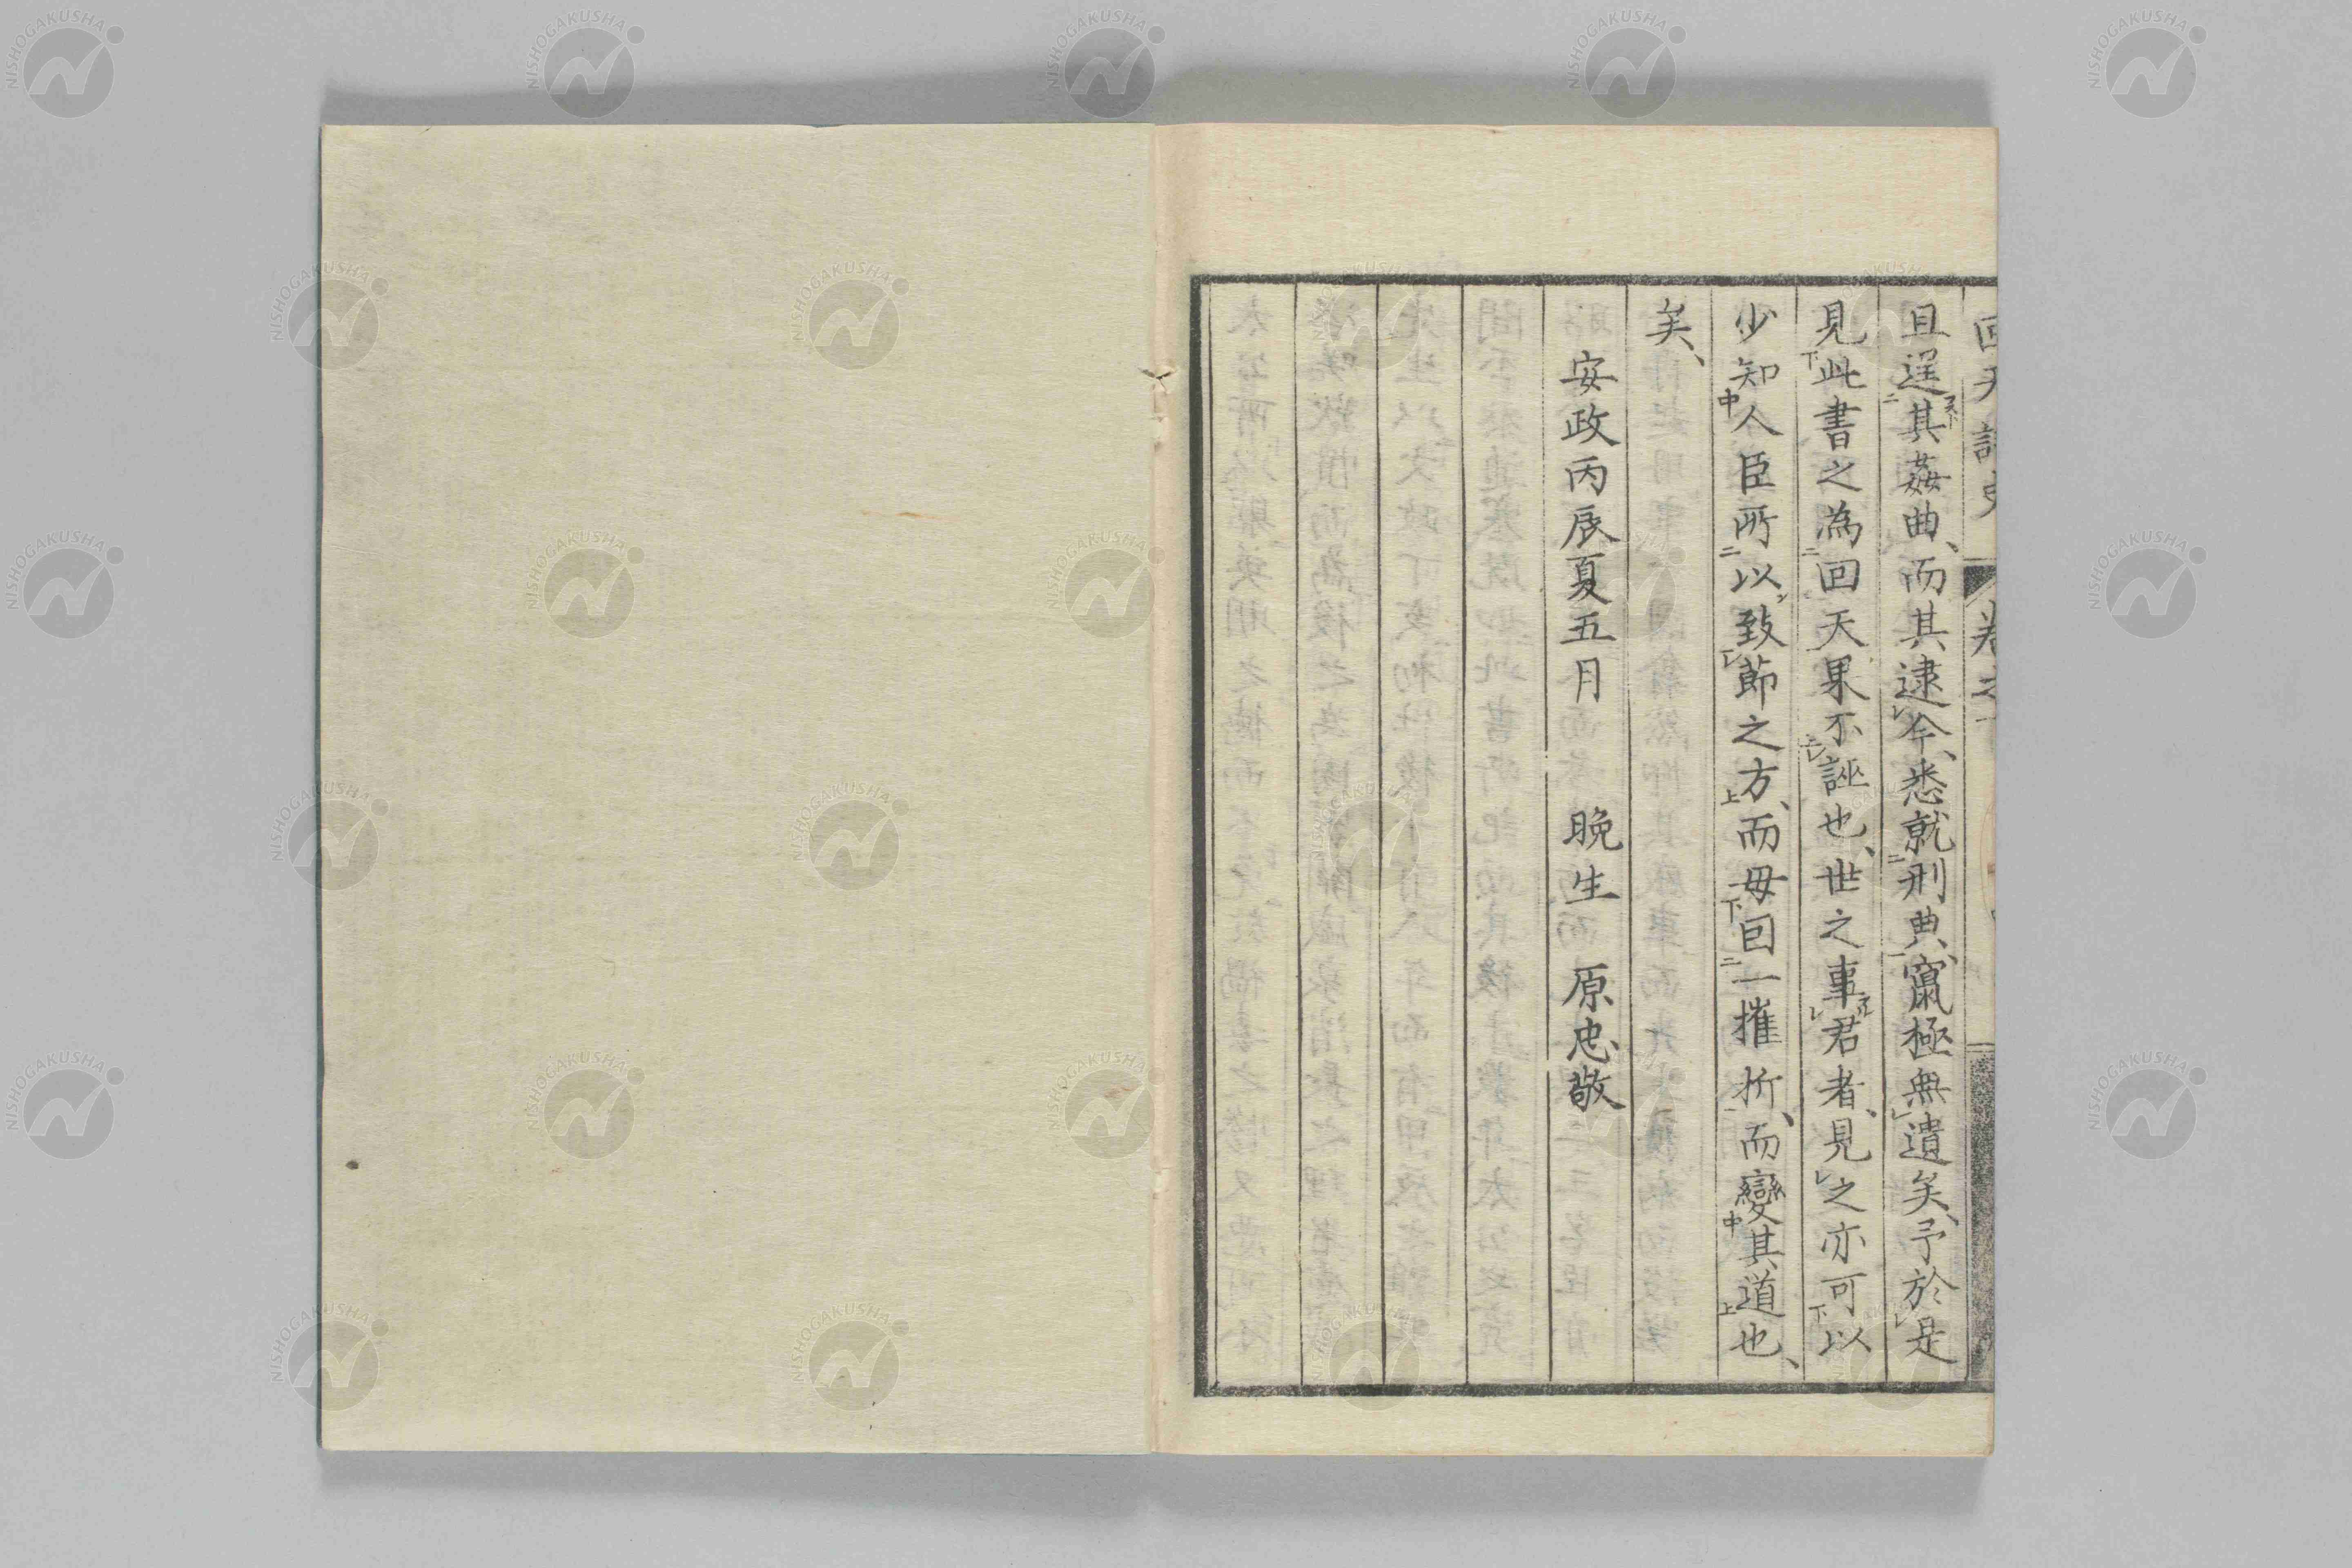 回天詩史 卷之下
且逞其姦曲、而其逮今、悉就刑典、竄殛無遺矣、予於是
見此書之為回天果不誣也、世之事君者、見之亦可以
少知人臣所以致節之方、而毋因一摧折、而變其道也、
矣、
安政丙辰夏五月 晩生 原忠敬
NISHOGAKUSHA